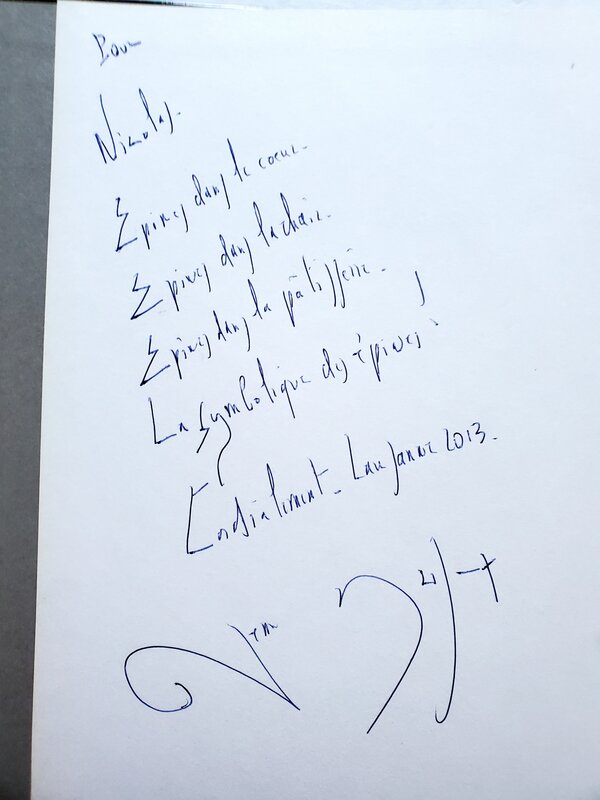 Pour
Nicolas.
Epines dans le coeur.
Epines dans la chair.
Epines dans la pâtisserie.
La symbolique des épines !
Cordialement _ Lausanne 2013.